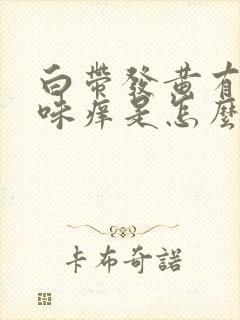 白帶發黄有
味痒是怎麼
卡布奇諾